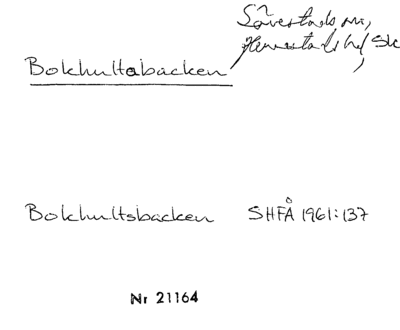 Sövestads sn,
Herrestads hd Sk
Bokhultabacken
Bokhultsbacken SHFÅ 1961:137
Nr 21164